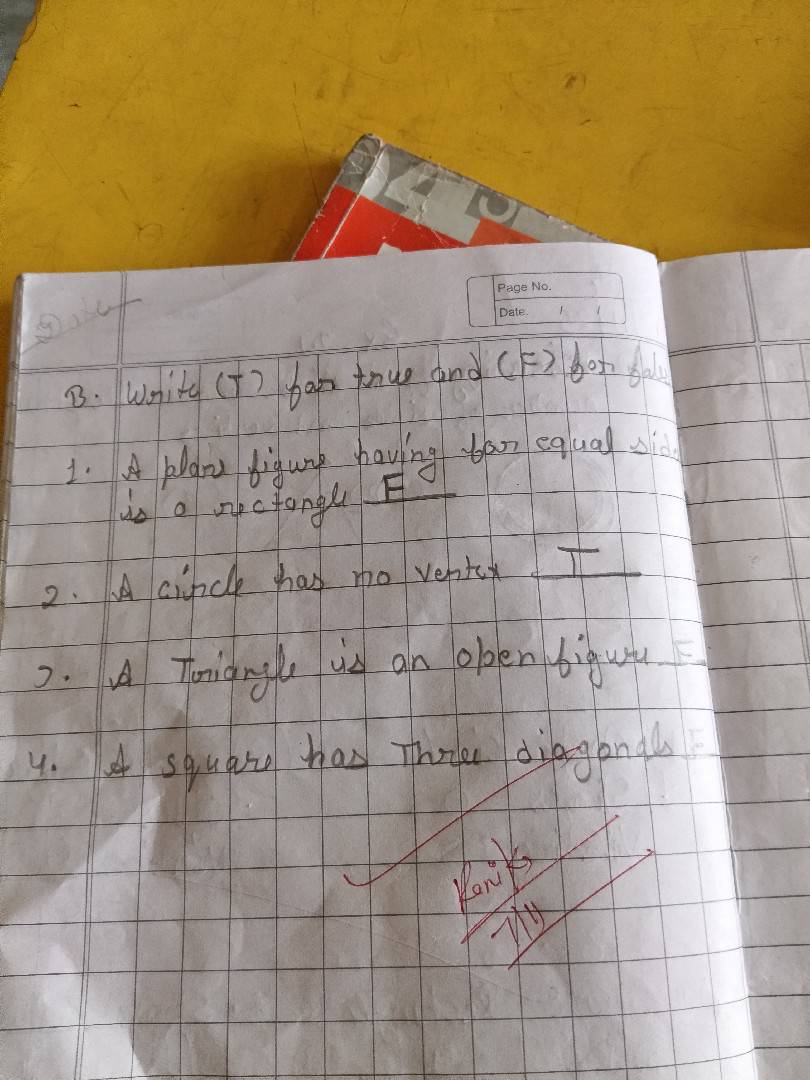 Date
Page No.
Date.
B. Write (T) for true and (F) for fals
1. A plane figure having four equal side
is a rectangle F
2. A circle has no vertex T
3. A Triangle is an open figure F
4. A square has Three diagonals F
7/11